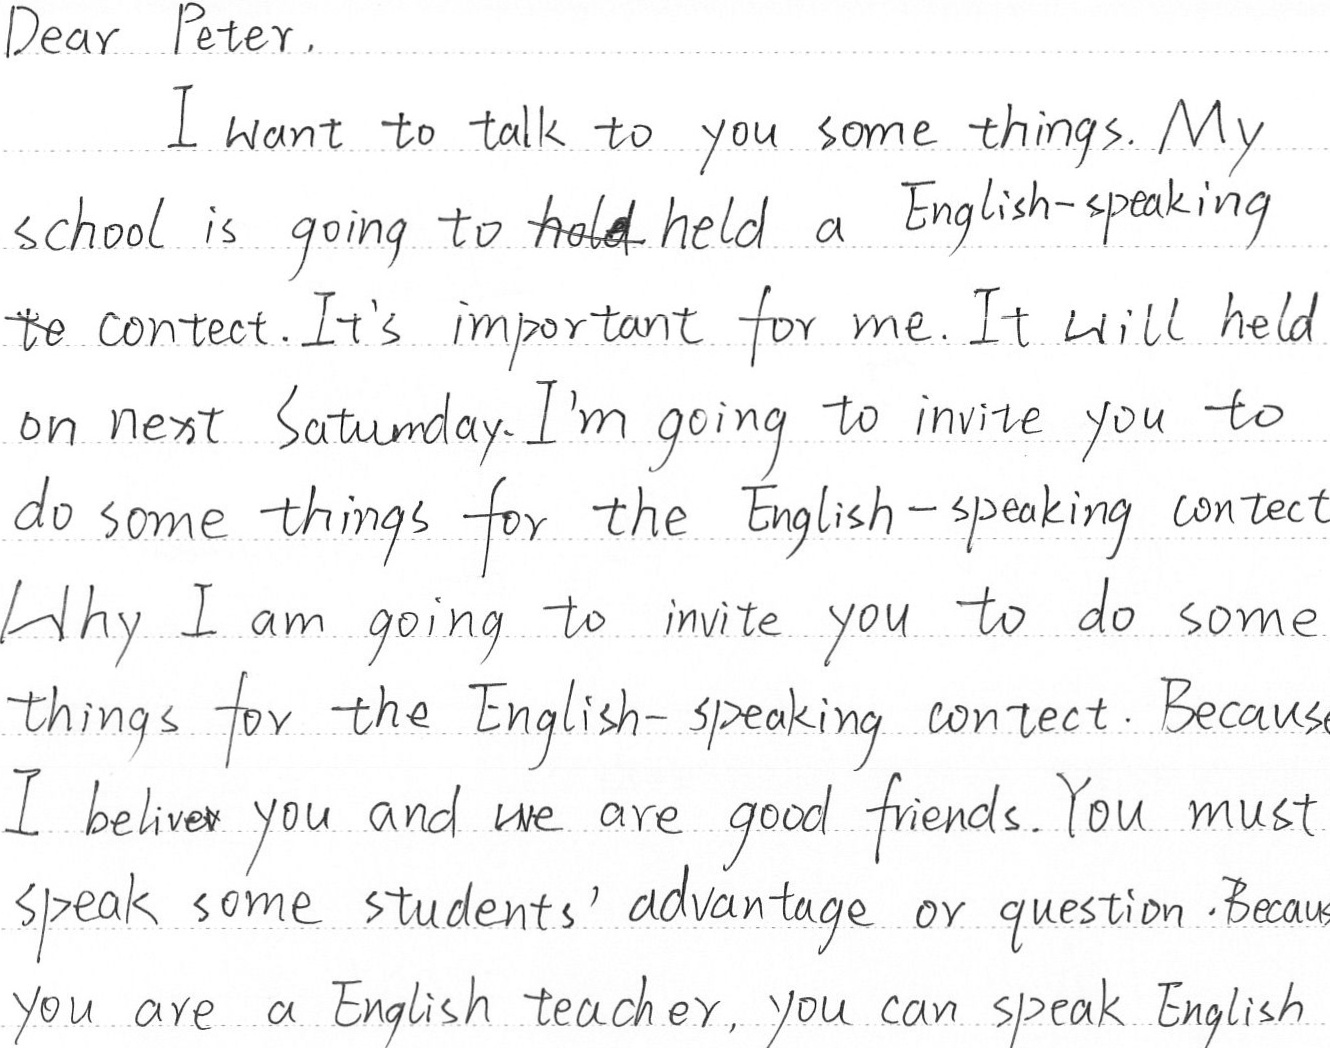 Dear Peter.
I want to talk to you some things. My
school is going to hold held a English-speaking
te contect. It's important for me. It will held
on next Saturnday. I'm going to invite you to
do some things for the English-speaking contect
Why I am going to invite you to do some
things for the English-speaking contect. Because
I beliver you and we are good friends. You must
speak some students' advantage or question. Becaus
you are a English teacher, you can speak English